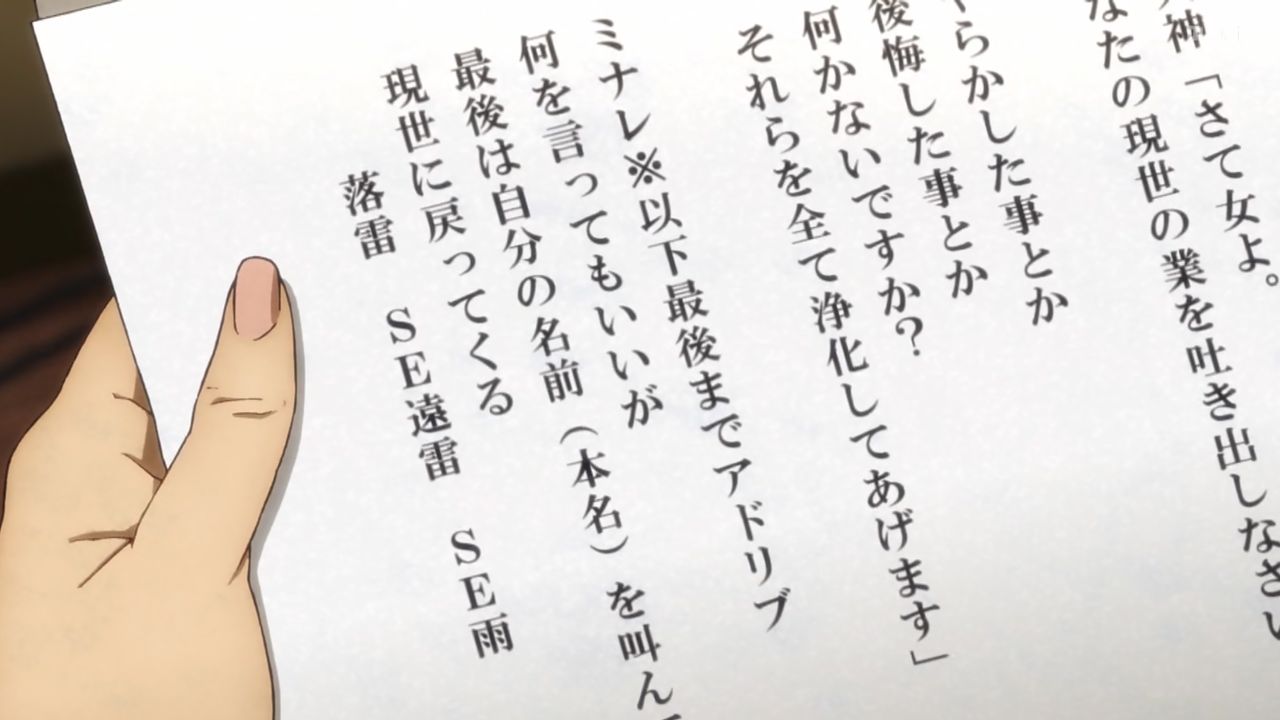 神「さて女よ。
なたの現世の業を吐き出しなさい
やらかした事とか
後悔した事とか
何かないですか?
それらを全て浄化してあげます」
ミナレ※以下最後までアドリブ
何を言ってもいいが
最後は自分の名前(本名)を叫ん
現世に戻ってくる
落雷 SE遠雷 SE雨